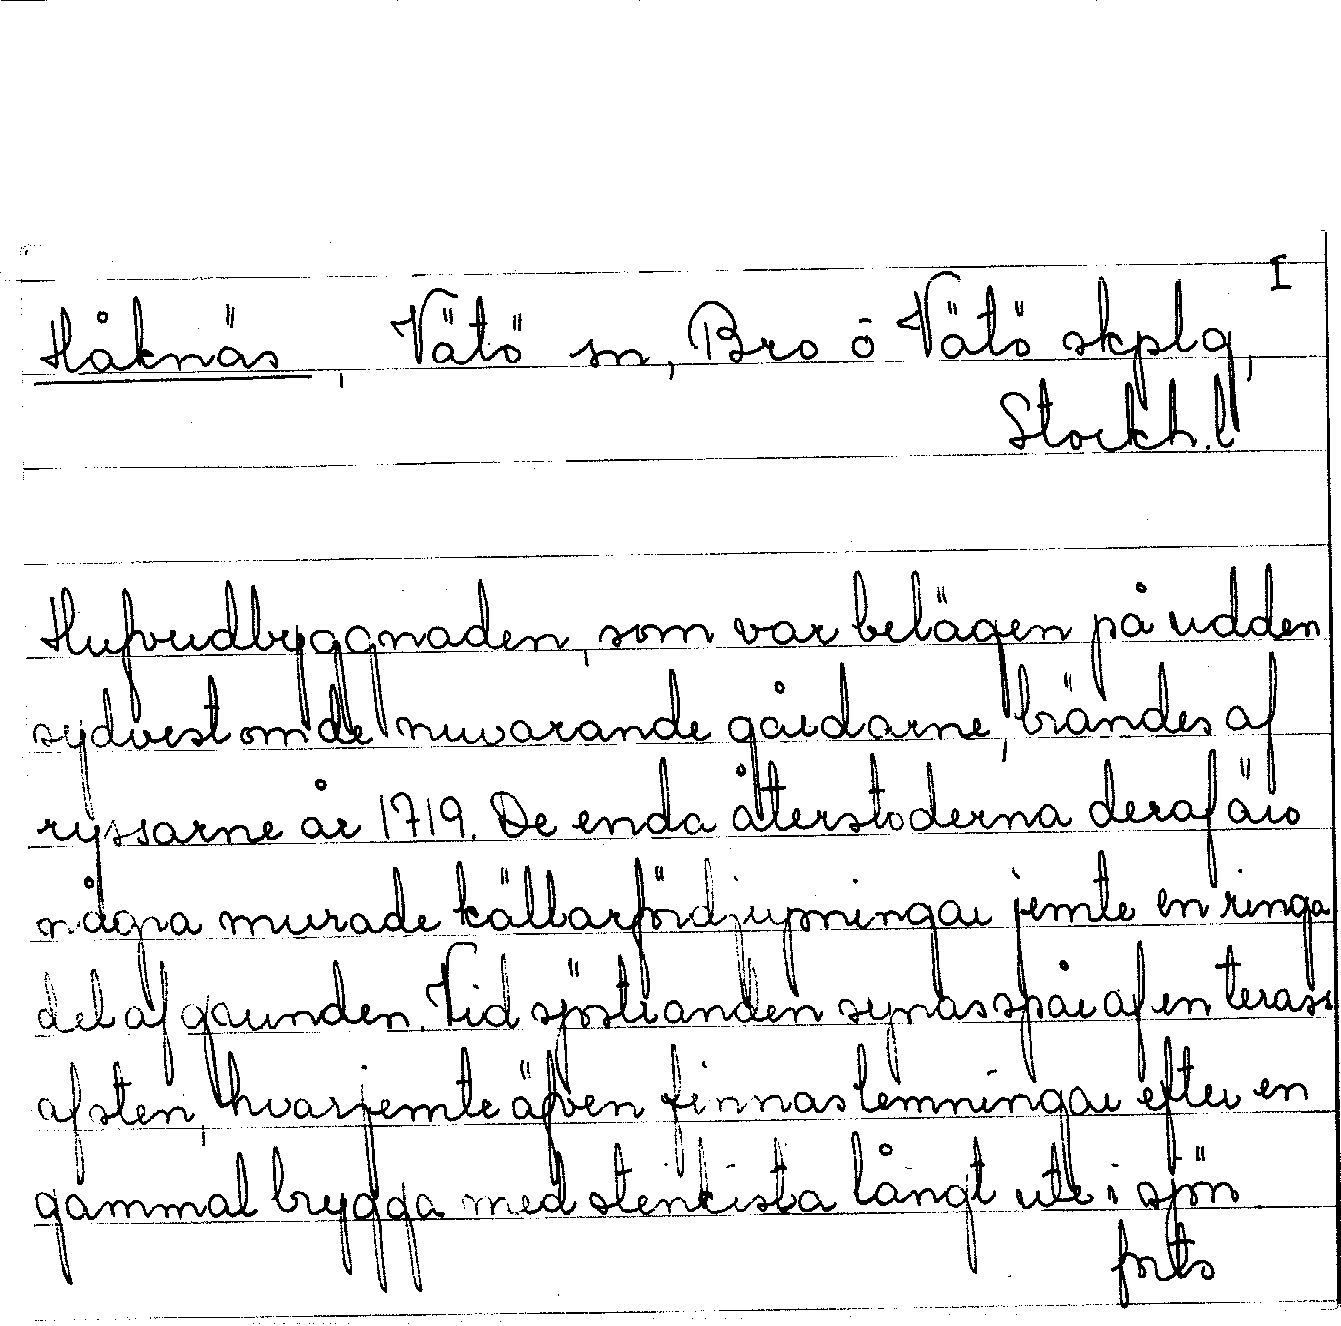 I
Håknäs, Vätö sn, Bro o Vätö skplg,
Stockh. l
Hufvudbyggnaden, som var belägen på udden
sydvest om de nuvarande gårdarne, brändes af
ryssarne år 1719. De enda återstoderna deraf äro
några murade källarfördjupningar jemte en ringa
del af grunden. Vid sjöstranden synas spår af en terass
af sten, hvarjemte äfven finnas lemningar efter en
gammal brygga med stenkista långt ute i sjön
forts